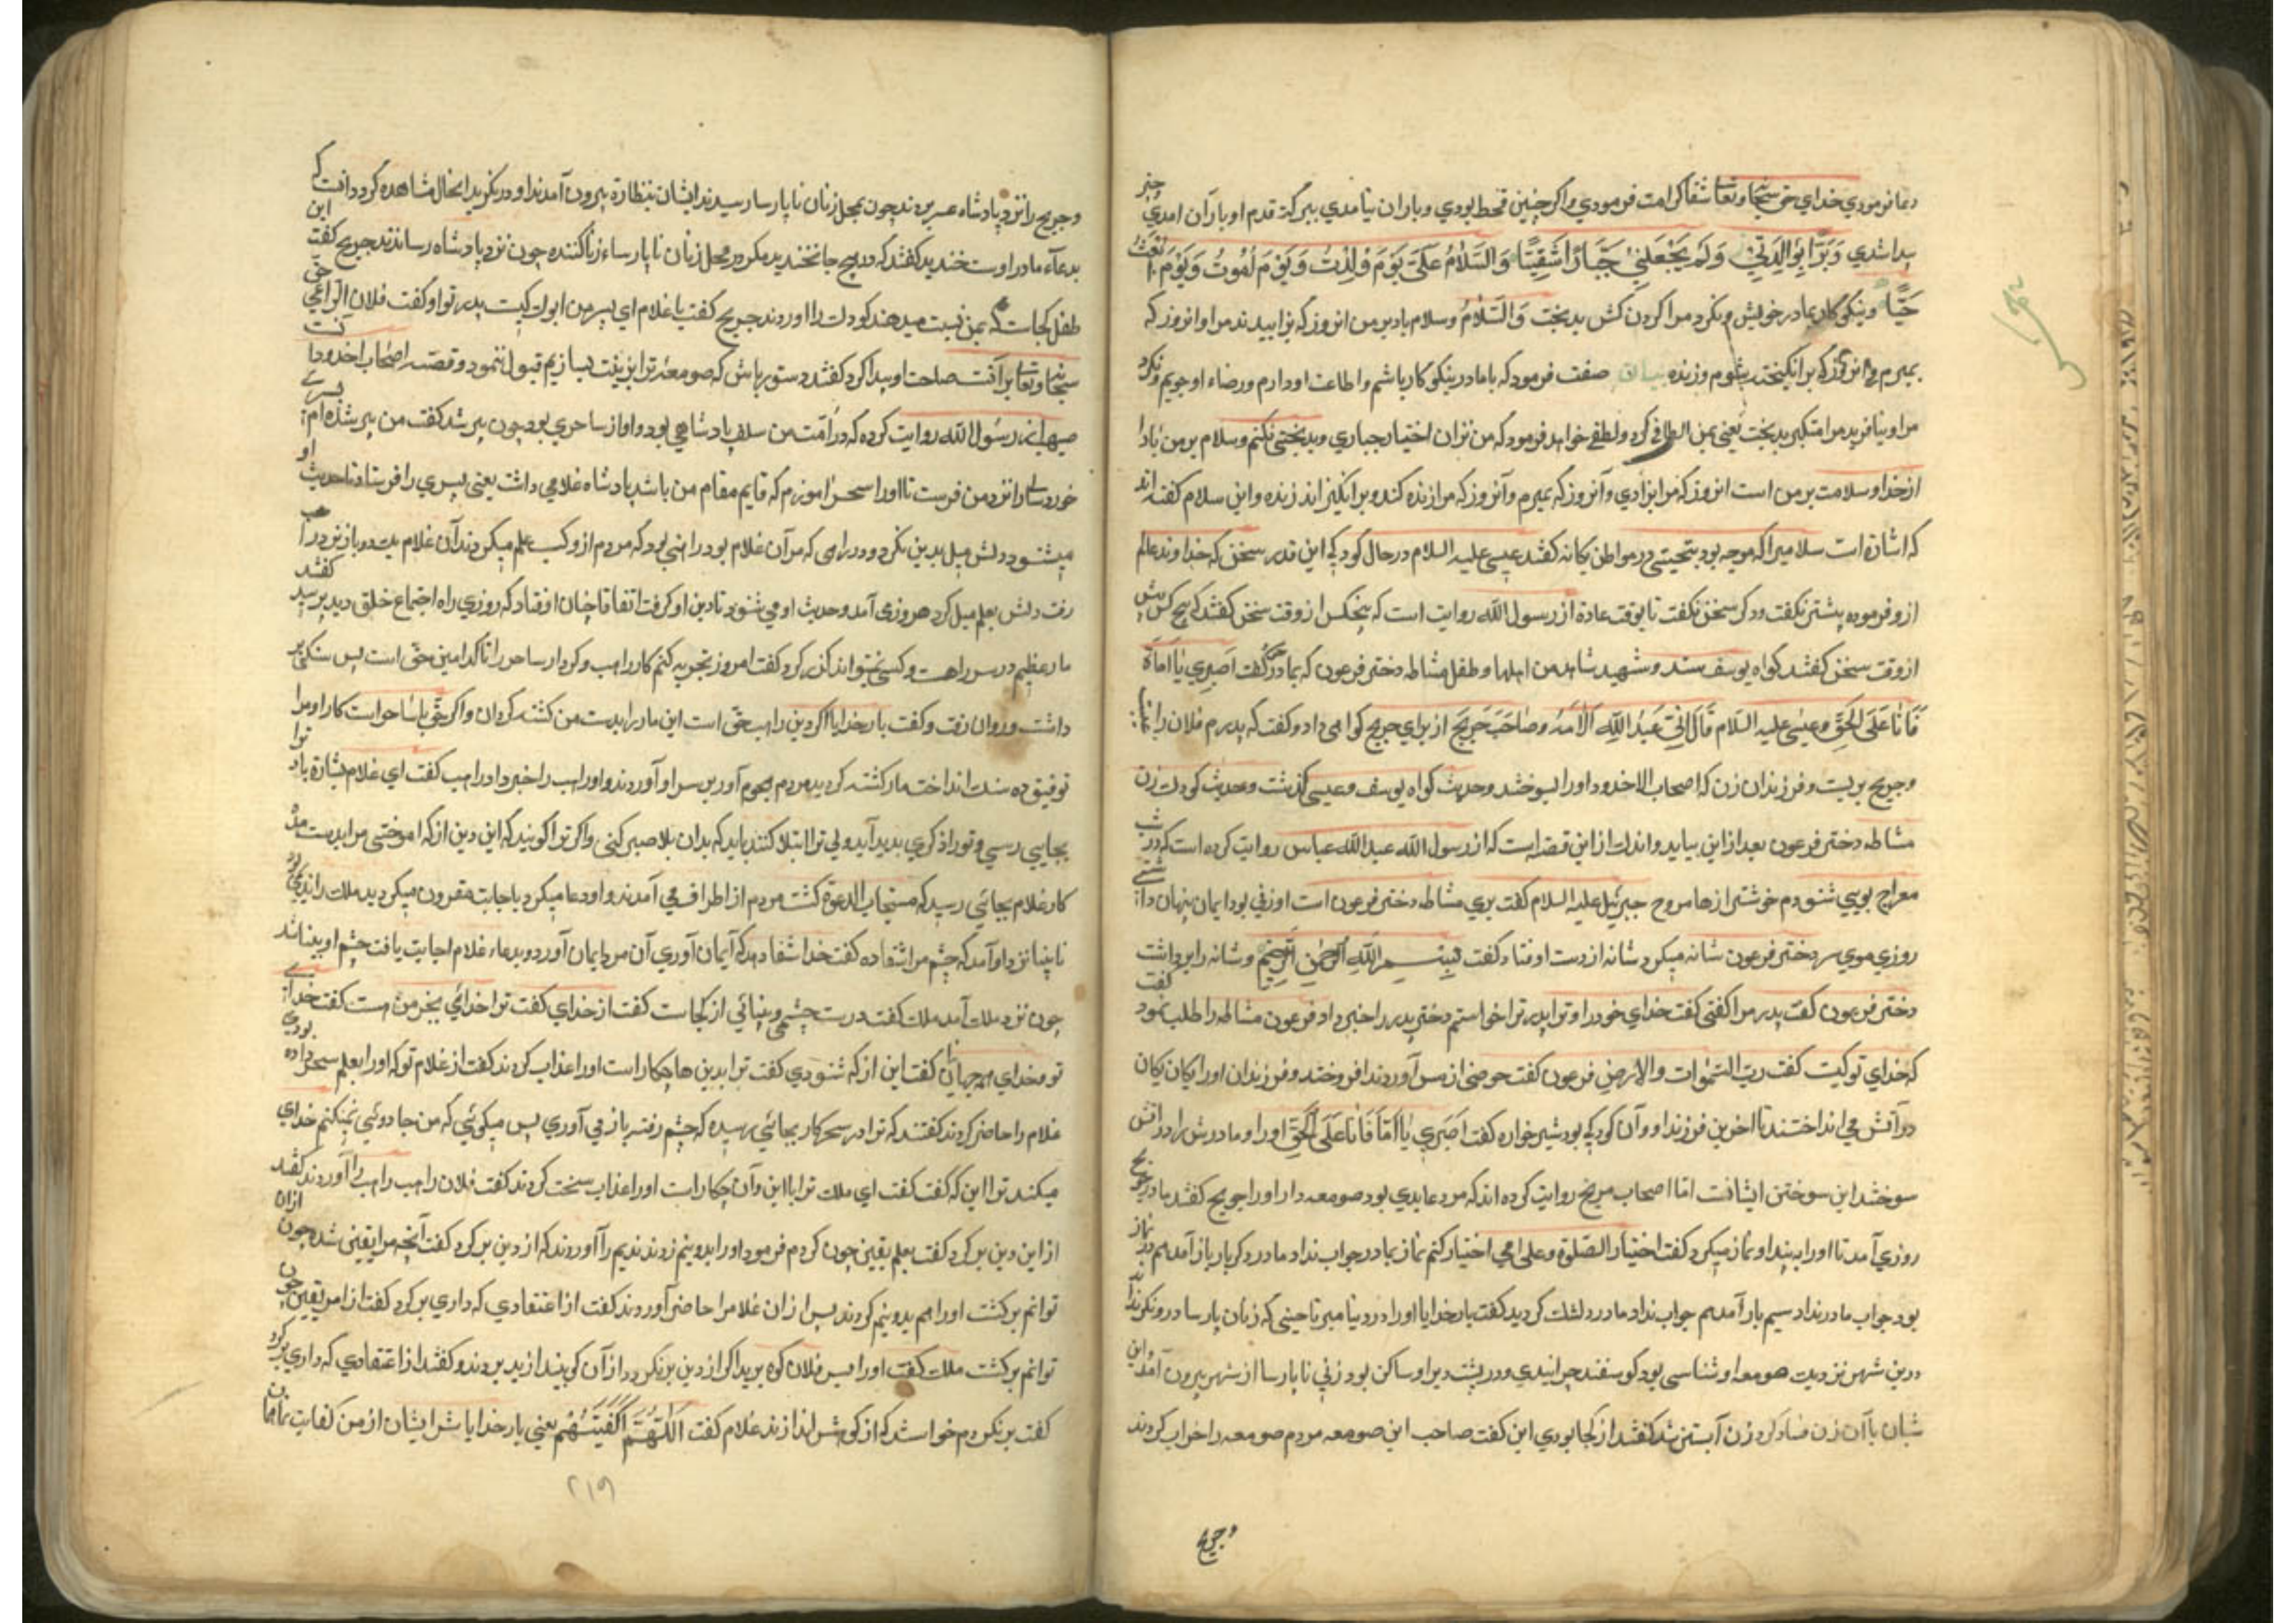 دعا فرمودي خداي حق سبحانه وتعالى شفا كرامت فرمودي واكر جنين قحط بودي وباران نيامدي ببركة قدم او باران امدي وخير
پيدا شدي وَبَرًّا بِوَالِدَتِي وَلَمْ يَجْعَلْنِي جَبَّارًا شَقِيًّا وَالسَّلَامُ عَلَيَّ يَوْمَ وُلِدْتُ وَيَوْمَ أَمُوتُ وَيَوْمَ أُبْعَثُ
حَيًّا ونيكو كار بمادر خويش ونكرد مرا كردن كش بدبخت وَالسَّلَامُ وسلام باد بر من انروز كه بزاييدند مرا وانروز كه
بميرم وانروز كه برانكيخته شوم وزنده صفت فرمود كه با مادر نيكو كار باشم واطاعت او دارم ورضاء او جويم ونكرد
مرا ونيافريد مرا متكبر بدبخت يعني بمن الطافي كرد ولطفي خواهد فرمود كه من بران اختيار جباري وبدبختي نكنم وسلام بر من باد
از خدا وسلامت بر من است انروز كه مرا بزادي وآنروز كه بميرم وآنروز كه مرا زنده كند وبرانكيزاند زنده واين سلام كفته اند
كه اشارة است سلاميرا كه موجه بود بتحيتي در مواطن يكانه كفتند عيسى عليه السلام در حال كودكي اين قدر سخن كه خداوند عالم
ازو فرموده پيشتر نكفت ودكر سخن نكفت تا بوقت عادة از رسول الله روايت است كه پنجكس از وقت سخن كفتند كه هيچ كس پيش
از وقت سخن كفتند كواه يوسف وشهد شاهد من اهلها وطفل مشاطه دختر فرعون كه بمادر كفت اصبري يا اماه
فَانا عَلَى الحَقِّ وعيسى عليه السلام قَالَ إِنِّي عَبْدُ اللَّهِ وصاحب جريج از براي جريج كواهي داد وكفت كه پدرم فلان راعي
وجريج بريست وفرزندان زن كه اصحاب الاخدود اورا بسوختند وحديث كواه يوسف وعيسى كذشت وحديث كودك زن
مشاطه دختر فرعون بعد از اين بيايد واندك از اين قصه است كه از رسول الله عبد الله عباس روايت كرده است كه در شب
معراج بويي شنودم خوشتر ازها مروح جبرئيل عليه السلام كفت بوي مشاطه دختر فرعون است او زني بود ايمان پنهان داشتي
روزي موي سر دختر فرعون شانه ميكرد شانه از دست او فتاد كفت بِسْمِ اللَّهِ الرَّحْمَنِ الرَّحِيمِ وشانه را برداشت
دختر فرعون كفت پدر مرا كفتي كفت خداي خود را وترا وپدر ترا خواستم دختر پدر را خبر داد فرعون مشاطه را طلب نمود كفت
كه خداي تو كيست كفت ربّ السّموات والارض فرعون كفت حوضي از مس آوردند افروختند وفرزندان اورا يكان يكان
در آتش مي انداختند تا اخرين فرزند او وآن كودكي بود شير خواره كفت اصبري يا امّا فانا على الحق اورا ومادرش را در آتش
سوختند اين سوختن ايشانست امّا اصحاب مريح روايت كرده اند كه مرد عابدي بود صومعه دار اورا جريج كفتند مادر جريج
روزي آمد تا اورا به بيند او نماز ميكرد كفت اختيار الصّلوة وعلى امي اختيار كنم نماز بمادر جواب نداد مادر دكر بار باز آمد هم در نماز
بود جواب مادر نداد سيم بار آمد هم جواب نداد مادر دلتنك كرديد كفت بار خدايا اورا در دنيا ميرتا حيني كه زنان پارسا درو نكرند
در بن شهر نزديك صومعه او شناسي بود كوسفند چرانيدي ودر پشت دير او ساكن بود زني نا پارسا از شهر بيرون آمد واين
شبان با آن زن فساد كرد زن آبستن شد كفتند از كجا بودي اين كفت صاحب اين صومعه مردم صومعه را خراب كردند
وجريج
وجريج را نزد پادشاه عصر بردند چون بمحل زنان نا پارسا رسيدند ايشان بنظاره بيرون آمدند او در نكريد انحال مشاهده كرد دانست كه
بدعآء مادر اوست خنديد كفتند كه در هيچ جا نخنديد مكر در محل زنان نا پارساء زنا كننده چون نزد پادشاه رساندند جريج كفت اين
طفل كجاست كه بمن نسبت ميدهند كودك را اوردند جريج كفت يا غلام اي پسر من ابوك كيست پدر تو او كفت فلان الراعي حق
سبحانه وتعالى برائت ساحت او پيدا كرد كفتند دستور باش كه صومعه ترا بزينت بسازيم قبول ننمود وقصّه اصحاب اخدود آنست
صهيب از رسول الله روايت كرده كه در امّت من سلف پادشاهي بود واو از ساحري بود چون پير شد كفت من پير شده ام پسري
خورد سال را نزد من فرست تا اورا سحر اموزم كه قايم مقام من باشد پادشاه غلامي داشت يعني پسري را فرستاد تا حديث او
ميشنود ودلش ميل بدين نكرد ودر راهي كه مر آن غلام بود راهبي بود كه مردم ازو كسب علم ميكردند آن غلام يك دو بار نزد راهب
رفت دلش بعلم ميل كرد هر روزي آمد وحديث او مي شنود تا دين او كرفت اتفاقا چنان افتاد كه روزي راه اجتماع خلق ديد پرسيد كفتند
مار عظيم در سر راهست وكسي نميتواند كذر كرد كفت امروز تجربه كنم كار راهب وكردار ساحر را تا كدامين حقّ است پس سنكي بر
داشت وروان رفت وكفت بار خدايا اكر دين راهب حقّ است اين مار را بدست من كشته كردان واكر حقّ با ساحر است كار او مرا
توفيق ده سنك انداخت مار كشته كرديد مردم هجوم آور بر سر او آوردند واو راهب را خبر داد راهب كفت اي غلام بشارة باد ترا
بجايي رسي وتورا ذكري پديد آيد ولي ترا ابتلا كنند بايد كه بدان بلا صبر كني واكر ترا كويند كه اين دين از كه اموختي مرا بدست مده
كار غلام بجائي رسيد كه مستجاب الدعوة كشت مردم از اطراف مي آمدند واو دعا ميكرد باجابت مقرون ميكرديد ملك را نديمي بود
نابينا نزد او آمد كه چشم مرا شفا ده كفت خدا شفا دهد كه ايمان آوري آن مرد ايمان آورد وبدعاء غلام اجابت يافت چشم او بينا شد
چون نزد ملك آمد ملك كفت درست چشمي وبينائي از كجاست كفت از خداي كفت ترا خدائي بجز من هست كفت خداي
تو وخداي همه جهان كفت اين از كه شنودي كفت ترا بدين ها چكار است اورا عذاب كردند كفت از غلام تو كه اورا بعلم سحر داده بودي
غلام را حاضر كردند كفتند كه ترا در سحر كار بجائي رسيده كه چشم رفته باز مي آوري پس ميكوئي كه من جادوئي نميكنم خداي
ميكند تورا اين كه كفت كفت اي ملك ترا با اين وآن چكار است اورا عذاب سخت كردند كفت فلان راهب راهب را آوردند كفتند
از اين دين بر كرد كفت بعلم يقين چون كردم فرمود اورا بدونيم زدند نديم را آوردند كه از دين بر كرد كفت آنچه مرا يقين شد چون ازان
توانم بركشت اورا هم بدونيم كردند پس از ان غلام را حاضر آوردند كفت از اعتقادي كه داري بر كرد كفت از امر يقين چون
توانم بركشت ملك كفت اورا بسر فلان كوه بريد اكر از دين بر نكردد از آن كوه بيندازيد بردند وكفتند از اعتقادي كه داري بر كرد
كفت بر نكردم خواستند كه از كوهش اندازند غلام كفت اَللّهُمَّ اكْفِيَنَّهُمْ يعني بار خدايا شر ايشان از من كفايت نما
٢١٩